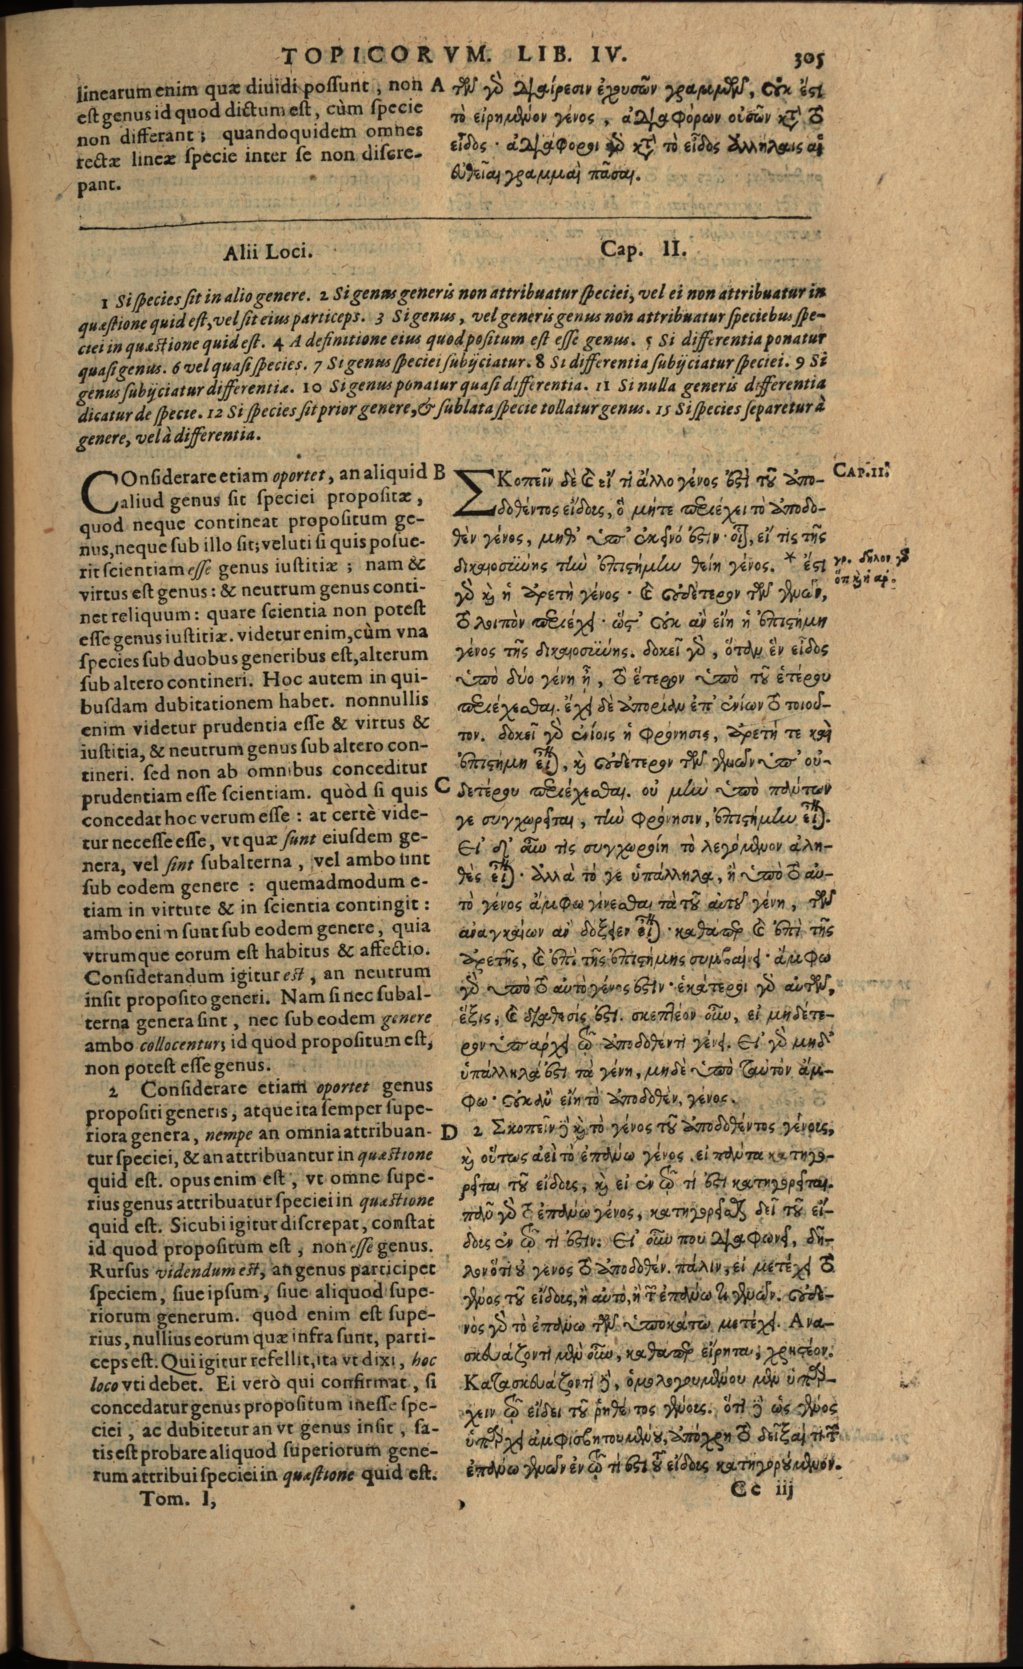 TOPICORVM. LIB. IV. 305
linearum enim quæ diuidi possunt, non
est genus id quod dictum est, cùm specie
non differant; quandoquidem omnes
rectæ lineæ specie inter se non discre-
pant.
A
τῶν γὸ διαίρεσιν ἐχουσῶν γραμμῶν, οὐκ ἔστι
τὸ εἰρημένον γένος, ἀδιαφόρων οὐσῶν κατὰ τὸ
εἶδος· ἀδιάφοροι γὸ κατὰ τὸ εἶδος ἀλλήλαις αἱ
εὐθεῖαι γραμμαὶ πᾶσαι.
Alii Loci. Cap. II.
1 Si species sit in alio genere. 2 Si genus generis non attribuatur speciei, vel ei non attribuatur in
quæstione quid est, vel sit eius particeps. 3 Si genus, vel generis genus non attribuatur speciebus spe-
ciei in quæstione quid est. 4 A definitione eius quod positum est esse genus. 5 Si differentia ponatur
quasi genus. 6 vel quasi species. 7 Si genus speciei subijciatur. 8 Si differentia subijciatur speciei. 9 Si
genus subijciatur differentiæ. 10 Si genus ponatur quasi differentia. 11 Si nulla generis differentia
dicatur de specie. 12 Si species sit prior genere, & sublata specie tollatur genus. 15 Si species separetur à
genere, vel à differentia.
COnsiderare etiam oportet, an aliquid
aliud genus sit speciei propositæ,
quod neque contineat propositum ge-
nus, neque sub illo sit; veluti si quis posue-
rit scientiam esse genus iustitiæ; nam &
virtus est genus: & neutrum genus conti-
net reliquum: quare scientia non potest
esse genus iustitiæ. videtur enim, cùm vna
species sub duobus generibus est, alterum
sub altero contineri. Hoc autem in qui-
busdam dubitationem habet. nonnullis
enim videtur prudentia esse & virtus &
iustitia, & neutrum genus sub altero con-
tineri. sed non ab omnibus conceditur
prudentiam esse scientiam. quòd si quis
concedat hoc verum esse: at certè vide-
tur necesse esse, vt quæ sunt eiusdem ge-
nera, vel sint subalterna, vel ambo sint
sub eodem genere: quemadmodum e-
tiam in virtute & in scientia contingit:
ambo enim sunt sub eodem genere, quia
vtrumque eorum est habitus & affectio.
Considerandum igitur est, an neutrum
insit proposito generi. Nam si nec subal-
terna genera sint, nec sub eodem genere
ambo collocentur; id quod propositum est,
non potest esse genus.
2 Considerare etiam oportet genus
propositi generis, atque ita semper supe-
riora genera, nempe an omnia attribuan-
tur speciei, & an attribuantur in quæstione
quid est. opus enim est, vt omne supe-
rius genus attribuatur speciei in quæstione
quid est. Sicubi igitur discrepat, constat
id quod propositum est, non esse genus.
Rursus videndum est, an genus participet
speciem, siue ipsum, siue aliquod supe-
riorum generum. quod enim est supe-
rius, nullius eorum quæ infra sunt, parti-
ceps est. Qui igitur refellit, ita vt dixi, hoc
loco vti debet. Ei verò qui confirmat, si
concedatur genus propositum inesse spe-
ciei, ac dubitetur an vt genus insit, sa-
tis est probare aliquod superiorum gene-
rum attribui speciei in quæstione quid est.
B
C
D
ΣΚοπεῖν δὲ καὶ εἴ τι ἄλλο γένος ἐστὶ τοῦ ἀπο-
δοθέντος εἴδους, ὃ μήτε περιέχει τὸ ἀποδο-
θὲν γένος, μηθ' ὑπ' ἐκεῖνό ἐστιν· οἷον, εἴ τις τῆς
δικαιοσύνης τὴν ἐπιστήμην θείη γένος. * ἔστι
γὸ καὶ ἡ ἀρετὴ γένος· καὶ οὐδέτερον τῶν γενῶν,
τὸ λοιπὸν περιέχει· ὥστ' οὐκ ἂν εἴη ἡ ἐπιστήμη
γένος τῆς δικαιοσύνης. δοκεῖ γὸ, ὅταν ἓν εἶδος
ὑπὸ δύο γένη ᾖ, τὸ ἕτερον ὑπὸ τοῦ ἑτέρου
περιέχεσθαι. ἔχει δὲ ἀπορίαν ἐπ' ἐνίων τὸ τοιοῦ-
τον. δοκεῖ γὸ ἐνίοις ἡ φρόνησις, ἀρετή τε καὶ
ἐπιστήμη εἶναι, καὶ οὐδέτερον τῶν γενῶν ὑπ' οὐ-
δετέρου περιέχεσθαι. οὐ μὴν ὑπὸ πάντων
γε συγχωρεῖται, τὴν φρόνησιν, ἐπιστήμην εἶναι.
Εἰ δ' οὖν τὶς συγχωροίη τὸ λεγόμενον ἀλη-
θὲς εἶναι· ἀλλὰ τό γε ὑπάλληλα, ἢ ὑπὸ τὸ αὐ-
τὸ γένος ἄμφω γίνεσθαι τὰ τοῦ αὐτοῦ γένη, τῶν
ἀναγκαίων ἂν δόξειεν εἶναι· καθάπερ καὶ ἐπὶ τῆς
ἀρετῆς, καὶ ἐπὶ τῆς ἐπιστήμης συμβαίνει· ἄμφω
γὸ ὑπὸ τὸ αὐτὸ γένος ἐστίν· ἑκάτερον γὸ αὐτῶν,
ἕξις, καὶ διάθεσίς ἐστι. σκεπτέον οὖν, εἰ μηδέτε-
ρον ὑπάρχει τῷ ἀποδοθέντι γένει. Εἰ γὸ μηδ'
ὑπάλληλά ἐστι τὰ γένη, μηδὲ ὑπὸ ταὐτὸν ἄμ-
φω· οὐκ ἂν εἴη τὸ ἀποδοθὲν, γένος.
2 Σκοπεῖν δὲ καὶ τὸ γένος τοῦ ἀποδοθέντος γένους,
καὶ οὕτως ἀεὶ τὸ ἐπάνω γένος, εἰ πάντα κατηγο-
ρεῖται τοῦ εἴδους, καὶ εἰ ἐν τῷ τί ἐστι κατηγορεῖται.
πᾶν γὸ τὸ ἐπάνω γένος, κατηγορεῖσθαι δεῖ τοῦ εἴ-
δους ἐν τῷ τί ἐστιν. Εἰ οὖν που διαφωνεῖ, δῆ-
λον ὅτι οὐ γένος τὸ ἀποδοθέν. πάλιν, εἰ μετέχει τὸ
γένος τοῦ εἴδους, ἢ αὐτὸ, ἢ τῶν ἐπάνω τι γενῶν. οὐδε-
νὸς γὸ τὸ ἐπάνω τῶν ὑποκάτω μετέχει. Ἀνα-
σκευάζοντι μὲν οὖν, καθάπερ εἴρηται, χρηστέον.
Κατασκευάζοντι δὲ, ὁμολογουμένου μὲν ὑπάρ-
χειν τῷ εἴδει τοῦ ῥηθέντος γένους. ὅτι δὲ ὡς γένος
ὑπάρχει ἀμφισβητουμένου, ἀπόχρη τὸ δεῖξαί τι τῶν
ἐπάνω γενῶν ἐν τῷ τί ἐστι τοῦ εἴδους κατηγορούμενον.
CAP. II.
γρ. δῆλον γὸ
ὅτι καὶ ἡ ἀρ.
Tom. I,
Cc iij